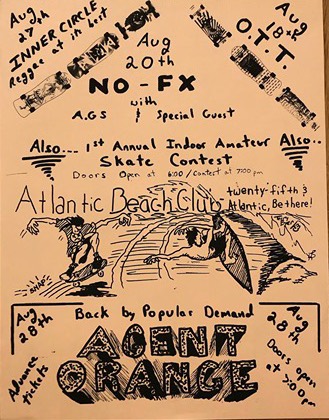 Aug
27th
INNER CIRCLE
Reggae at its best
Aug
18th
O.T.T.
Aug
20th
NO-FX
with
A.G.S & Special Guest
Also... 1st Annual Indoor Amateur Also..
Skate Contest
Doors Open at 6:00 / Contest at 7:00 pm
Atlantic Beach Club
twenty-fifth &
Atlantic, Be there!
SNAP
Back by Popular Demand
Aug
28th
Advance
tickets
AGENT
ORANGE
Aug
28th
Doors open
at 7:00 pm